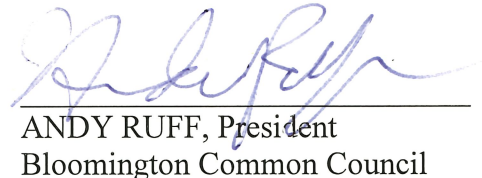 Andy Ruff
ANDY RUFF, President
Bloomington Common Council